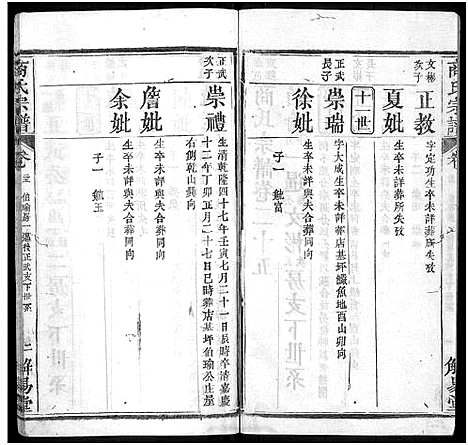 商氏宗譜
文彬次子
正教
字定功生卒未詳葬所失攷
夏妣
生卒未詳葬所失攷
十一世
正武長子
崇瑞
字大成生卒未詳葬店基坪鱖魚地酉山卯向
徐妣
生卒未詳與夫合葬同向
子一 毓富
解易堂
正武次子
崇禮
生清乾隆四十七年壬寅七月二十一日辰時卒清嘉慶
十二年丁卯正月二十七日巳時葬店基坪伯瑜公庄屋
右側乾山巽向
詹妣
生卒未詳與夫合葬同向
余妣
生卒未詳與夫合葬同向
子一 毓玉
商氏宗譜
解易堂